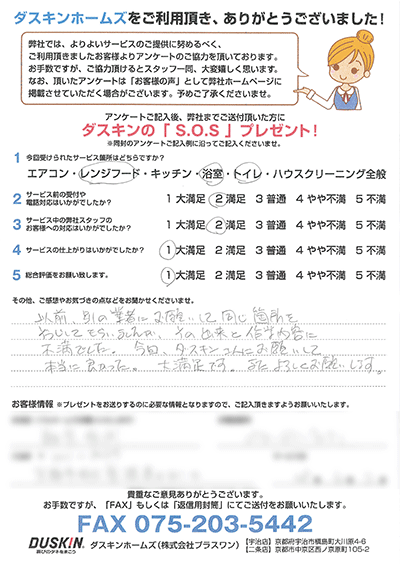 ダスキンホームズをご利用頂き、ありがとうございました！
弊社では、よりよいサービスのご提供に努めるべく、
ご利用頂きましたお客様よりアンケートのご協力を頂いております。
お手数ですが、ご協力頂けるとスタッフ一同、大変嬉しく思います。
なお、頂いたアンケートは「お客様の声」として弊社ホームページに
掲載させていただく場合がございます。予めご了承くださいませ。
アンケートご記入後、弊社までご送付頂いた方に
ダスキンの「S.O.S」プレゼント！
※同封のアンケートご記入例に沿ってご記入くださいませ。
1 今回受けられたサービス箇所はどちらですか？
エアコン・レンジフード・キッチン・浴室・トイレ・ハウスクリーニング全般
2 サービス前の受付や
電話対応はいかがでしたか？
1 大満足 2 満足 3 普通 4 やや不満 5 不満
3 サービス中の弊社スタッフの
お客様への対応はいかがでしたか？
1 大満足 2 満足 3 普通 4 やや不満 5 不満
4 サービスの仕上がりはいかがでしたか？
1 大満足 2 満足 3 普通 4 やや不満 5 不満
5 総合評価をお願い致します。
1 大満足 2 満足 3 普通 4 やや不満 5 不満
その他、ご感想やお気づきの点などをお聞かせくださいませ。
以前、別の業者にお願いして同じ箇所を
そうじしてもらいましたが、その出来と作業内容に
不満でした。今回、ダスキンさんにお願いして
本当に良かった。大満足です。またよろしくお願いします。
お客様情報 ※プレゼントをお送りするのに必要な情報となりますので、ご記入頂きますようお願いいたします。
貴重なご意見ありがとうございます。
お手数ですが、「FAX」もしくは「返信用封筒」にてご送付をお願いいたします。
FAX 075-203-5442
DUSKIN
喜びのタネをまこう
ダスキンホームズ（株式会社プラスワン）
【宇治店】京都府宇治市槇島町大川原4-6
【二条店】京都市中京区西ノ京原町105-2